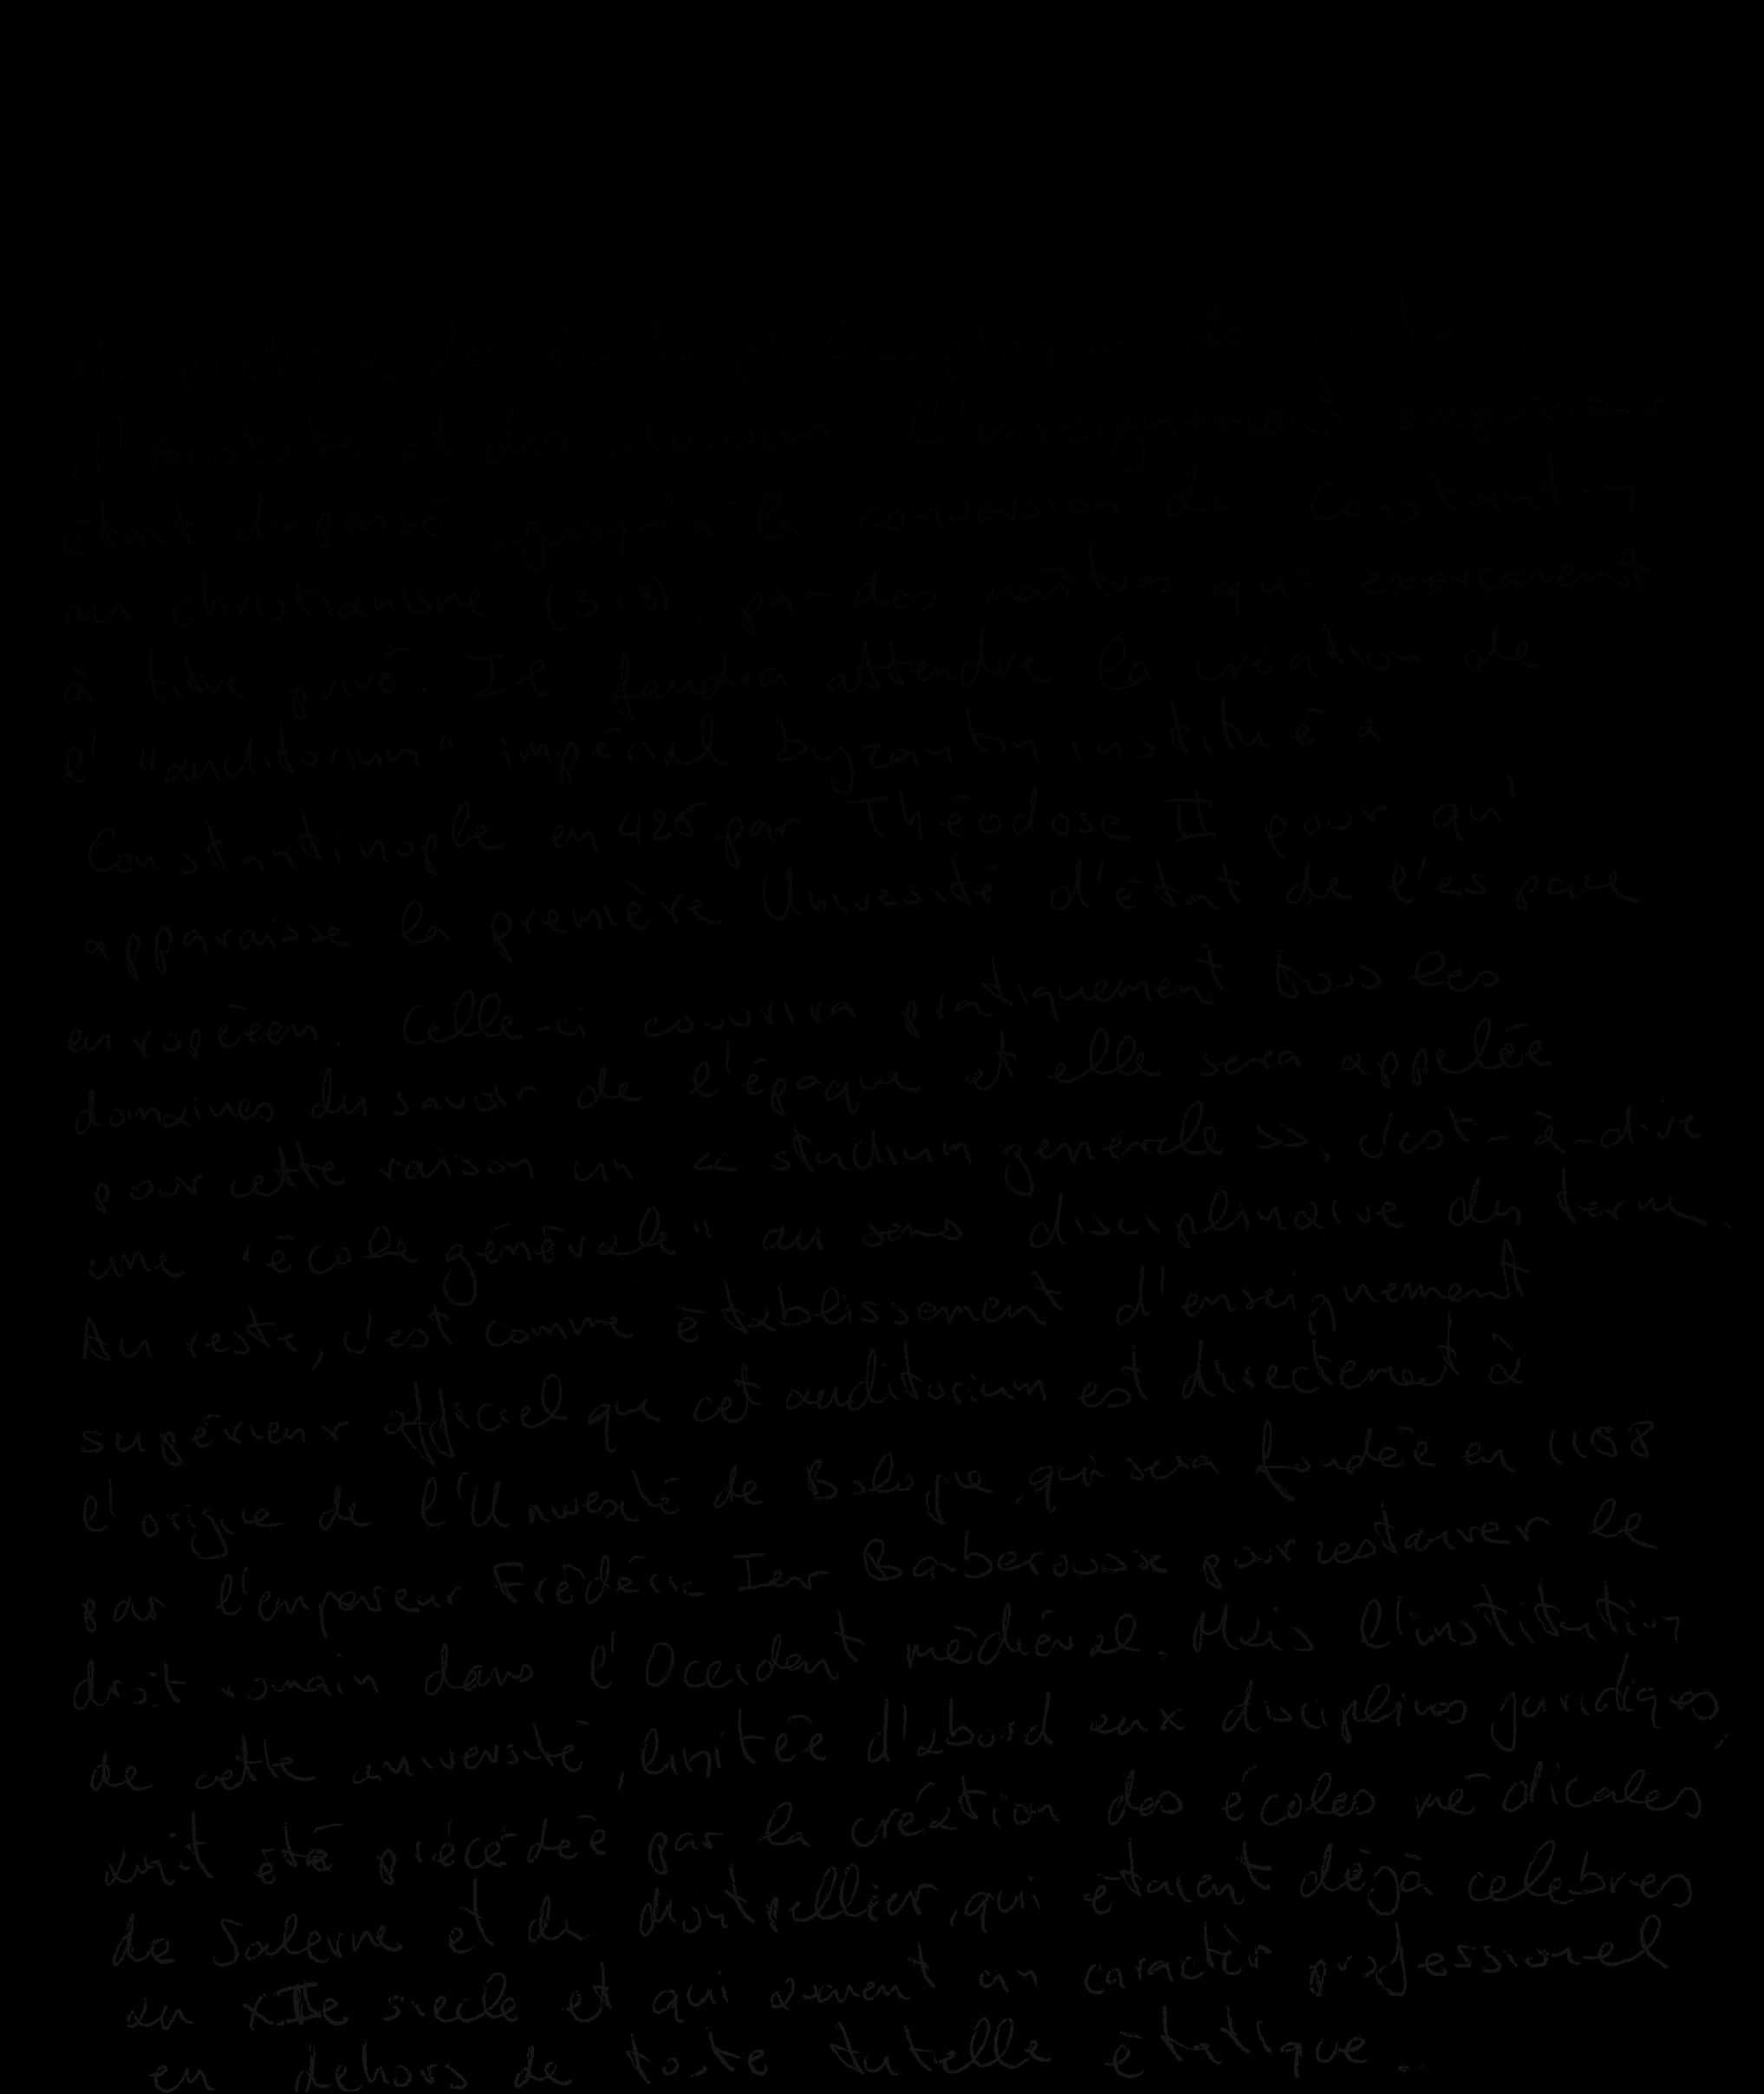 la pratique des écoles philosophiques de
d'Aristote et des stoïciens, l'enseignement supérieur
était dispensé, jusqu'à la conversion de Constantin
au christianisme (313), par des maîtres qui exerçaient
à titre privé. Il faudra attendre la création de
l' "auditorium" impérial byzantin institué à
Constantinople en 425 par Théodose II pour qu'
apparaisse la première Université d'état de l'espace
européen. Celle-ci couvrira pratiquement tous les
domaines du savoir de l'époque et elle sera appelée
pour cette raison un << studium generale >>, c'est-à-dire
une "école générale" au sens disciplinaire du terme.
Au reste, c'est comme établissement d'enseignement
supérieur officiel que cet auditorium est directement à
l'origine de l'Université de Bologne, qui sera fondée en 1158
par l'empereur Frédéric Ier Barberousse pour restaurer le
droit romain dans l'Occident médiéval. Mais l'institution
de cette université, limitée d'abord aux disciplines juridiques,
avait été précédée par la création des écoles médicales
de Salerne et de Montpellier, qui étaient déjà celebres
au XIIe siecle et qui avaient un caractèr professionel
en dehors de toute tutelle étatique.